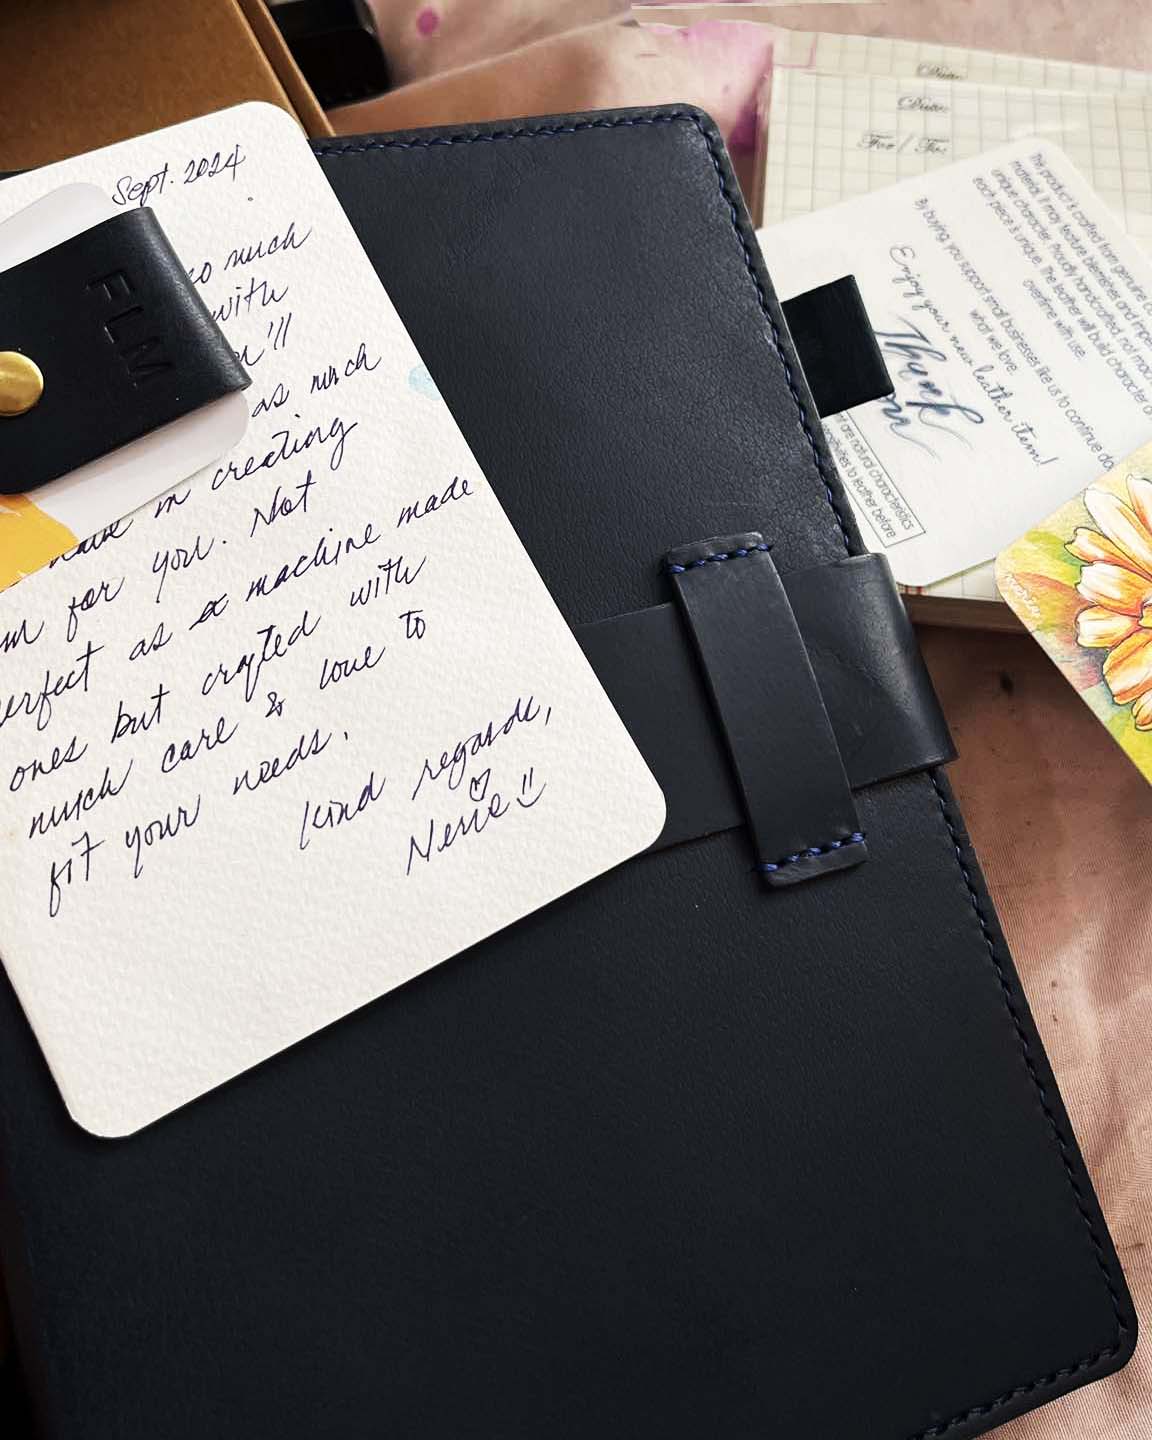 Sept. 2024
so much
with
as much
in creating
for you. Not
perfect as a machine made
ones but crafted with
much care & love to
fit your needs.
Kind regards,
FLM
Date:
Date:
For / To:
The product is crafted from genuine
material. It may feature blemishes and
unique character. Proudly handcrafted, not
each piece is unique. The leather will build character
overtime with use.
By buying, you support small businesses like us to continue
what we love.
Enjoy your new leather item!
Thank
are natural characteristics
to leather before